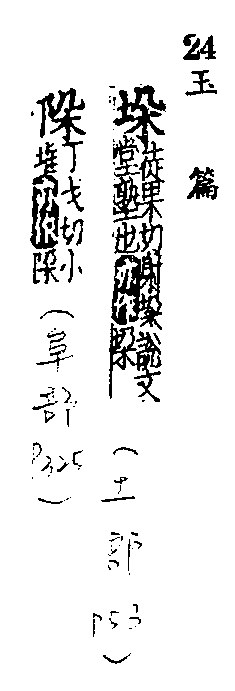 24 玉篇
垛
徒果切射垜說文
堂塾也亦作
(土部 P53)
丁戈切小
堆亦作
(阜部 P325)